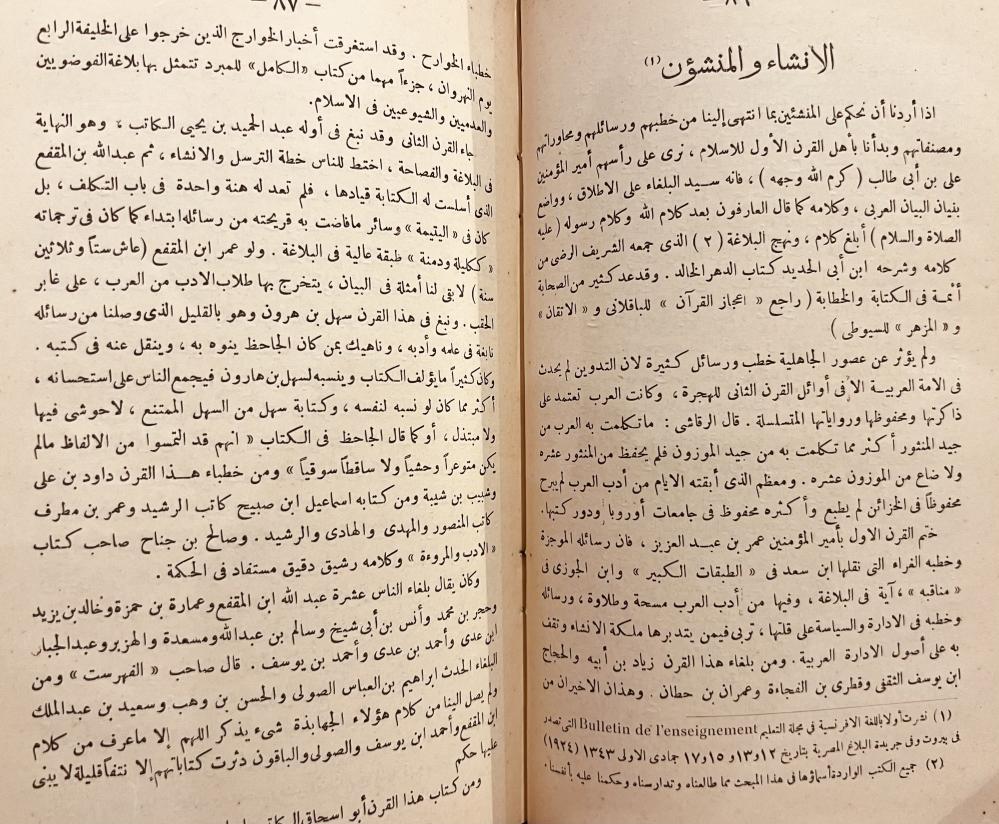 — ٨٦ —
الانشاء والمنشؤن (١)
اذا أردنا أن نحكم على المنشئين بما انتهى إلينا من خطبهم ورسائلهم ومحاوراتهم
ومصنفاتهم وبدأنا بأهل القرن الأول للاسلام ، نرى على رأسهم أمير المؤمنين
على بن أبى طالب ( كرم الله وجهه ) ، فانه سيد البلغاء على الاطلاق ، وواضع
بنيان البيان العربى ، وكلامه كما قال العارفون بعد كلام الله وكلام رسوله ( عليه
الصلاة والسلام ) أبلغ كلام ، ونهج البلاغة ( ٢ ) الذى جمعه الشريف الرضى من
كلامه وشرحه ابن أبى الحديد كتاب الدهر الخالد . وقد عد كثير من الصحابة
أئمة فى الكتابة والخطابة ( راجع « اعجاز القرآن » للباقلانى و « الاتقان »
و « المزهر » للسيوطى )
ولم يؤثر عن عصور الجاهلية خطب ورسائل كثيرة لان التدوين لم يحدث
فى الامة العربية الا فى أوائل القرن الثانى للهجرة ، وكانت العرب تعتمد على
ذاكرتها ومحفوظها ورواياتها المتسلسلة . قال الرقاشى : ماتكلمت به العرب من
جيد المنثور أكثر مما تكلمت به من جيد الموزون فلم يحفظ من المنثور عشره
ولا ضاع من الموزون عشره . ومعظم الذى أبقته الايام من أدب العرب لم يبرح
محفوظاً فى الخزائن لم يطبع وأكثره محفوظ فى جامعات أوروبا ودور كتبها.
ختم القرن الاول بأمير المؤمنين عمر بن عبد العزيز ، فان رسائله الموجزة
وخطبه الغراء التى نقلها ابن سعد فى « الطبقات الكبير » وابن الجوزى فى
« مناقبه » ، آية فى البلاغة ، وفيها من أدب العرب مسحة وطلاوة ، ورسائله
وخطبه فى الادارة والسياسة على قلتها ، تربى فيمن يتدبرها ملكة الانشاء وتقف
به على أصول الادارة العربية . ومن بلغاء هذا القرن زياد بن أبيه والحجاج
ابن يوسف الثقفى وقطرى بن الفجاءة وعمران بن حطان . وهذان الاخيران من
(١) نشرت أولا باللغة الافرنسية فى مجلة التعليم Bulletin de l'enseignement التى تصدر
فى بيروت وفى جريدة البلاغ المصرية بتاريخ ١٢ و ١٣ و ١٥ و ١٧ جمادى الاولى ١٣٤٣ (١٩٢٤)
(٢) جميع الكتب الواردة أسماؤها فى هذا المبحث مما طالعناه وتدارسناه وحكمنا عليه بأنفسنا.
— ٨٧ —
خطباء الخوارج . وقد استغرقت أخبار الخوارج الذين خرجوا على الخليفة الرابع
يوم النهروان ، جزءاً مهما من كتاب « الكامل » للمبرد تتمثل بها بلاغة الفوضويين
والعدميين والشيوعيين فى الاسلام.
جاء القرن الثانى وقد نبغ فى أوله عبد الحميد بن يحيى الكاتب ، وهو النهاية
فى البلاغة والفصاحة ، اختط للناس خطة الترسل والانشاء ، ثم عبدالله بن المقفع
الذى أسلست له الكتابة قيادها ، فلم تعد له هنة واحدة فى باب التكلف ، بل
كان فى « اليتيمة » وسائر مافاضت به قريحته من رسائله ابتداء كما كان فى ترجماته
« ككليلة ودمنة » طبقة عالية فى البلاغة . ولو عمر ابن المقفع ( عاش ستاً وثلاثين
سنة ) لابقى لنا أمثلة فى البيان ، يتخرج بها طلاب الادب من العرب ، على غابر
الحقب . ونبغ فى هذا القرن سهل بن هرون وهو بالقليل الذى وصلنا من رسائله
نابغة فى علمه وأدبه ، وناهيك بمن كان الجاحظ ينوه به ، وينقل عنه فى كتبه .
وكان كثيراً مايؤلف الكتاب وينسبه لسهل بن هارون فيجمع الناس على استحسانه ،
أكثر مما كان لو نسبه لنفسه ، وكتابة سهل من السهل الممتنع ، لاحوشى فيها
ولا مبتذل ، أو كما قال الجاحظ فى الكتاب « انهم قد التمسوا من الالفاظ مالم
يكن متوعراً وحشياً ولا ساقطاً سوقياً » ومن خطباء هذا القرن داود بن على
وشبيب بن شيبة ومن كتابه اسماعيل ابن صبيح كاتب الرشيد وعمر بن مطرف
كاتب المنصور والمهدى والهادى والرشيد . وصالح بن جناح صاحب كتاب
« الادب والمروءة » وكلامه رشيق دقيق مستفاد فى الحكمة .
وكان يقال بلغاء الناس عشرة عبد الله ابن المقفع وعمارة بن حمزة وخالد بن يزيد
وحجر بن محمد وأنس بن أبى شيخ وسالم بن عبدالله ومسعدة والهزبر وعبد الجبار
ابن عدى وأحمد بن عدى وأحمد بن يوسف . قال صاحب « الفهرست » ومن
البلغاء الحدث ابراهيم بن العباس الصولى والحسن بن وهب وسعيد بن عبد الملك
ولم يصل الينا من كلام هؤلاء الجهابذة شىء يذكر اللهم إلا ماعرف من كلام
ابن المقفع وأحمد ابن يوسف والصولى والباقون دثرت كتاباتهم إلا نتفاً قليلة لا يبنى
عليها حكم
ومن كتاب هذا القرن أبو اسحاق